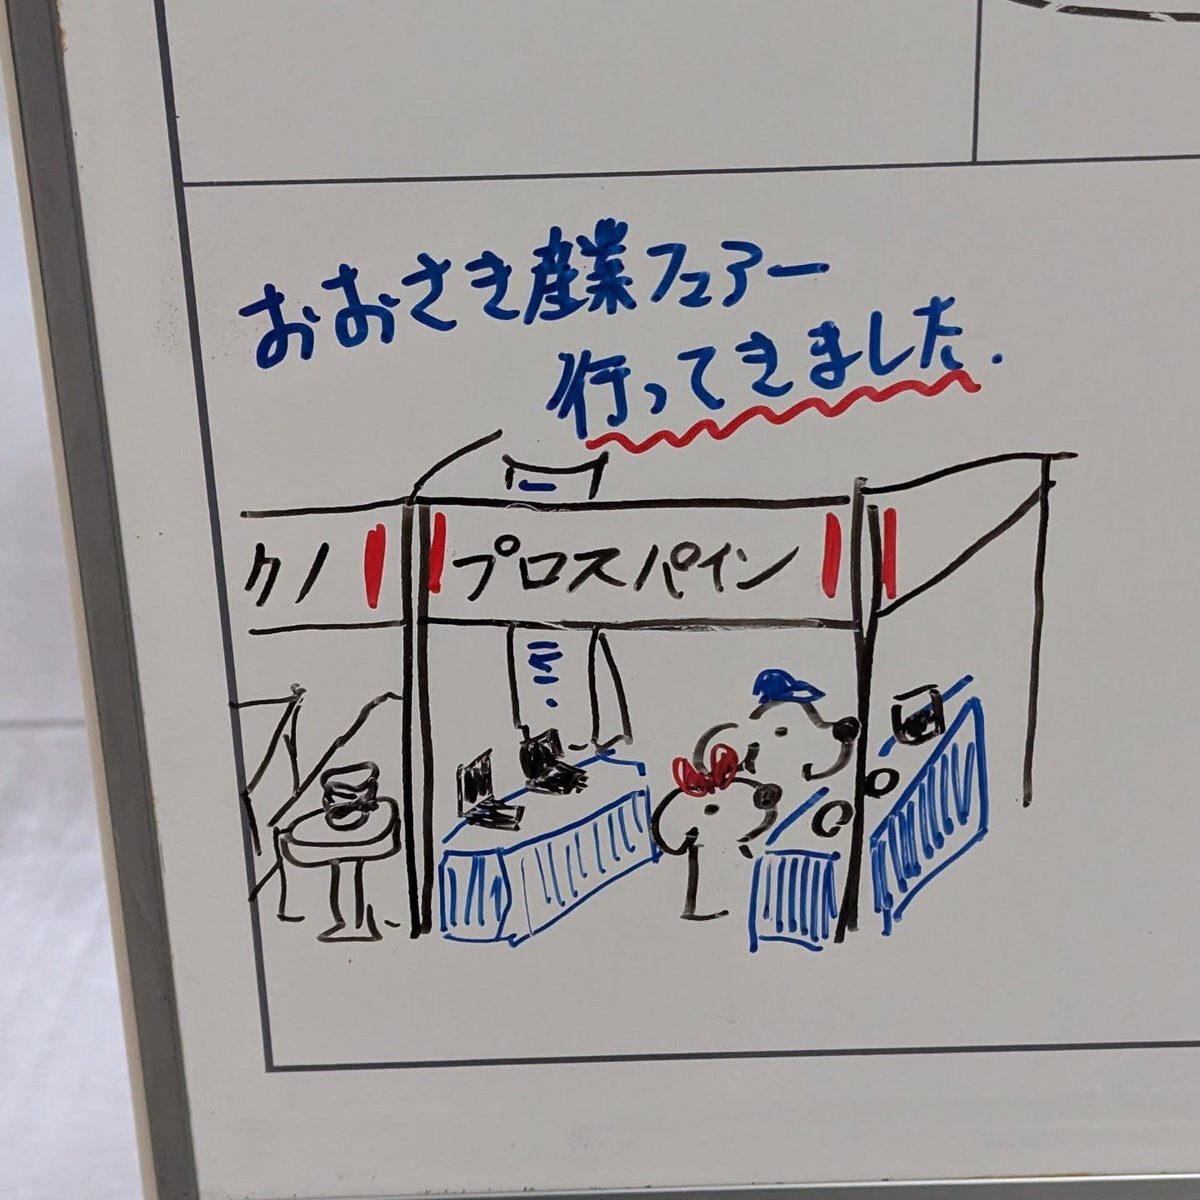 おおさき産業フェアー
行ってきました.
クノ
プロスパイン